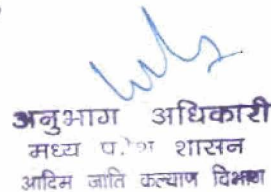 अनुभाग अधिकारी
मध्य प.ेश शासन
आदिम जाति कल्याण विभाग